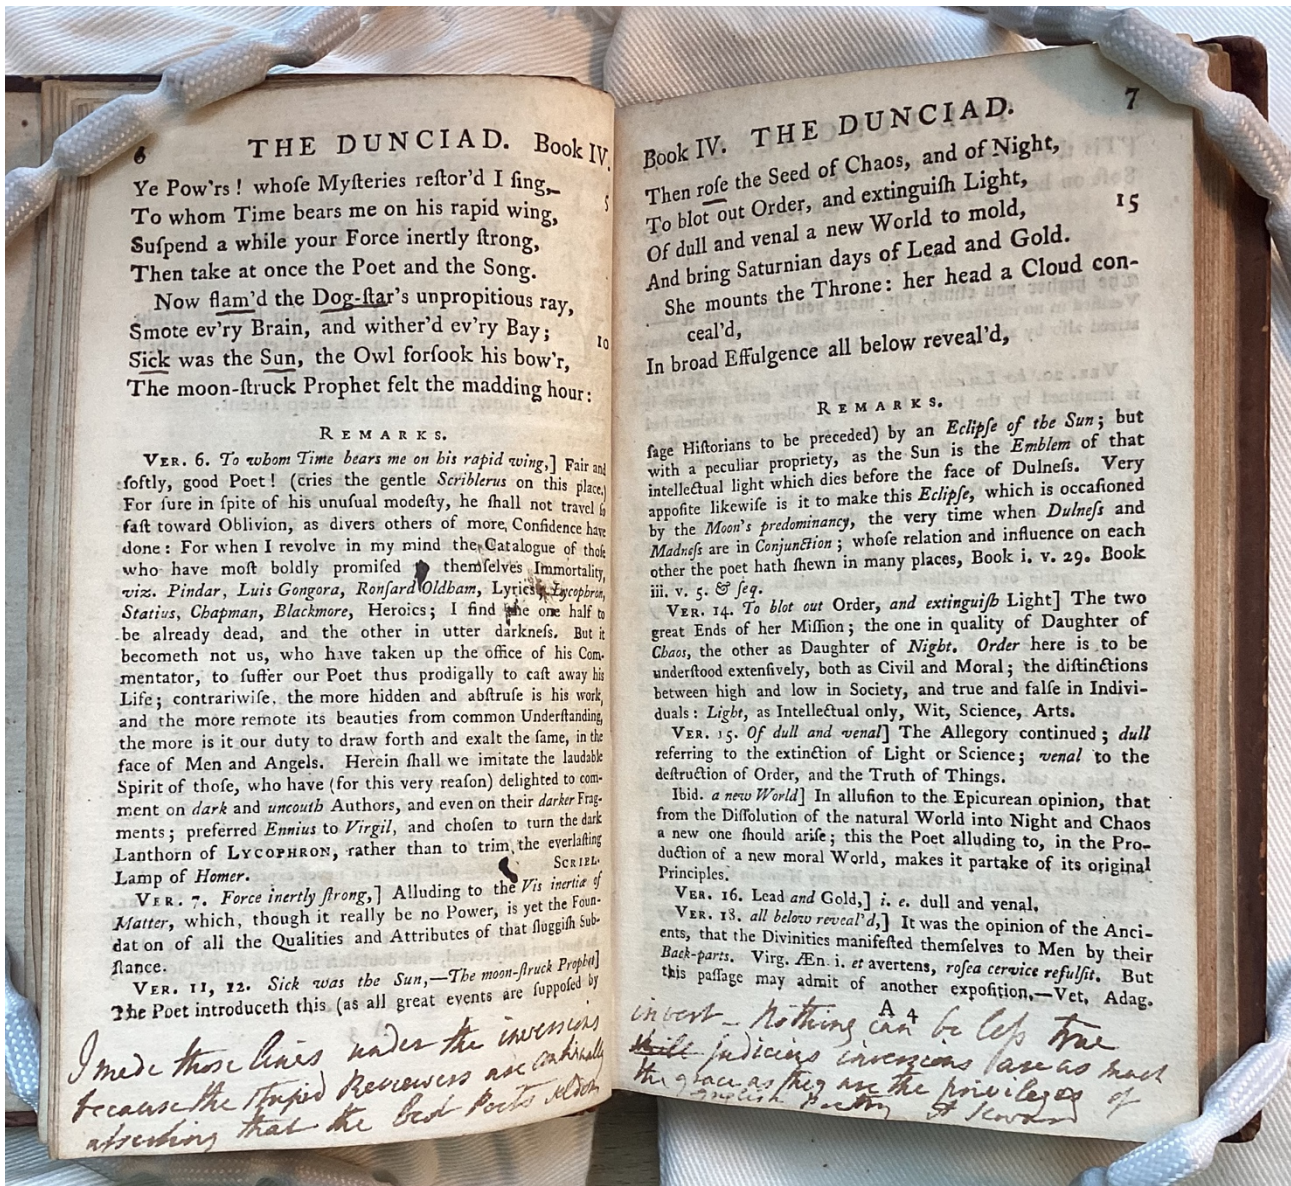 6 THE DUNCIAD. Book IV.
Ye Pow'rs ! whoſe Myſteries reſtor'd I ſing,
To whom Time bears me on his rapid wing, 5
Suſpend a while your Force inertly ſtrong,
Then take at once the Poet and the Song.
Now flam'd the Dog-ſtar's unpropitious ray,
Smote ev'ry Brain, and wither'd ev'ry Bay; 10
Sick was the Sun, the Owl forſook his bow'r,
The moon-ſtruck Prophet felt the madding hour:
REMARKS.
VER. 6. To whom Time bears me on his rapid wing,] Fair and
ſoftly, good Poet! (cries the gentle Scriblerus on this place.)
For ſure in ſpite of his unuſual modeſty, he ſhall not travel ſo
faſt toward Oblivion, as divers others of more Confidence have
done: For when I revolve in my mind the Catalogue of thoſe
who have moſt boldly promiſed themſelves Immortality,
viz. Pindar, Luis Gongora, Ronſard Oldham, Lyrics; Lycophron,
Statius, Chapman, Blackmore, Heroics; I find the one half to
be already dead, and the other in utter darkneſs. But it
becometh not us, who have taken up the office of his Com-
mentator, to ſuffer our Poet thus prodigally to caſt away his
Life; contrariwiſe, the more hidden and abſtruſe is his work,
and the more remote its beauties from common Underſtanding,
the more is it our duty to draw forth and exalt the ſame, in the
face of Men and Angels. Herein ſhall we imitate the laudable
Spirit of thoſe, who have (for this very reaſon) delighted to com-
ment on dark and uncouth Authors, and even on their darker Frag-
ments; preferred Ennius to Virgil, and choſen to turn the dark
Lanthorn of LYCOPHRON, rather than to trim the everlaſting
Lamp of Homer. SCRIBL.
VER. 7. Force inertly ſtrong,] Alluding to the Vis inertiæ of
Matter, which, though it really be no Power, is yet the Foun-
dat on of all the Qualities and Attributes of that ſluggiſh Sub-
ſtance.
VER. 11, 12. Sick was the Sun,—The moon-ſtruck Prophet]
The Poet introduceth this (as all great events are ſuppoſed by
I made those lines under the inversions
because the stupid Reviewers are continually
asserting that the best Poets seldom
Book IV. THE DUNCIAD. 7
Then roſe the Seed of Chaos, and of Night,
To blot out Order, and extinguiſh Light,
Of dull and venal a new World to mold, 15
And bring Saturnian days of Lead and Gold.
She mounts the Throne: her head a Cloud con-
ceal'd,
In broad Effulgence all below reveal'd,
REMARKS.
ſage Hiſtorians to be preceded) by an Eclipſe of the Sun; but
with a peculiar propriety, as the Sun is the Emblem of that
intellectual light which dies before the face of Dulneſs. Very
appoſite likewiſe is it to make this Eclipſe, which is occaſioned
by the Moon's predominancy, the very time when Dulneſs and
Madneſs are in Conjunction; whoſe relation and influence on each
other the poet hath ſhewn in many places, Book i. v. 29. Book
iii. v. 5. & ſeq.
VER. 14. To blot out Order, and extinguiſh Light] The two
great Ends of her Miſſion; the one in quality of Daughter of
Chaos, the other as Daughter of Night. Order here is to be
underſtood extenſively, both as Civil and Moral; the diſtinctions
between high and low in Society, and true and falſe in Indivi-
duals: Light, as Intellectual only, Wit, Science, Arts.
VER. 15. Of dull and venal] The Allegory continued; dull
referring to the extinction of Light or Science; venal to the
deſtruction of Order, and the Truth of Things.
Ibid. a new World] In alluſion to the Epicurean opinion, that
from the Diſſolution of the natural World into Night and Chaos
a new one ſhould ariſe; this the Poet alluding to, in the Pro-
duction of a new moral World, makes it partake of its original
Principles.
VER. 16. Lead and Gold,] i. e. dull and venal.
VER. 18. all below reveal'd,] It was the opinion of the Anci-
ents, that the Divinities manifeſted themſelves to Men by their
Back-parts. Virg. Æn. i. et avertens, roſea cervice refulſit. But
this paſſage may admit of another expoſition.—Vet. Adag.
A 4
invert – Nothing can be less true
judicious inversions are as much
the grace as they are the privileges of
English Poetry A Seward